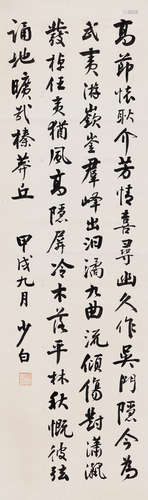 高節懷耿介芳情喜尋幽久作吳門隱今為
武夷游嶔崟羣峰出泪潏九曲流傾傷對瀟㵳
發棹任夷猶風高隱屏冷木落平林秋慨彼弦
誦地曠哉榛莽丘 甲戌九月 少白